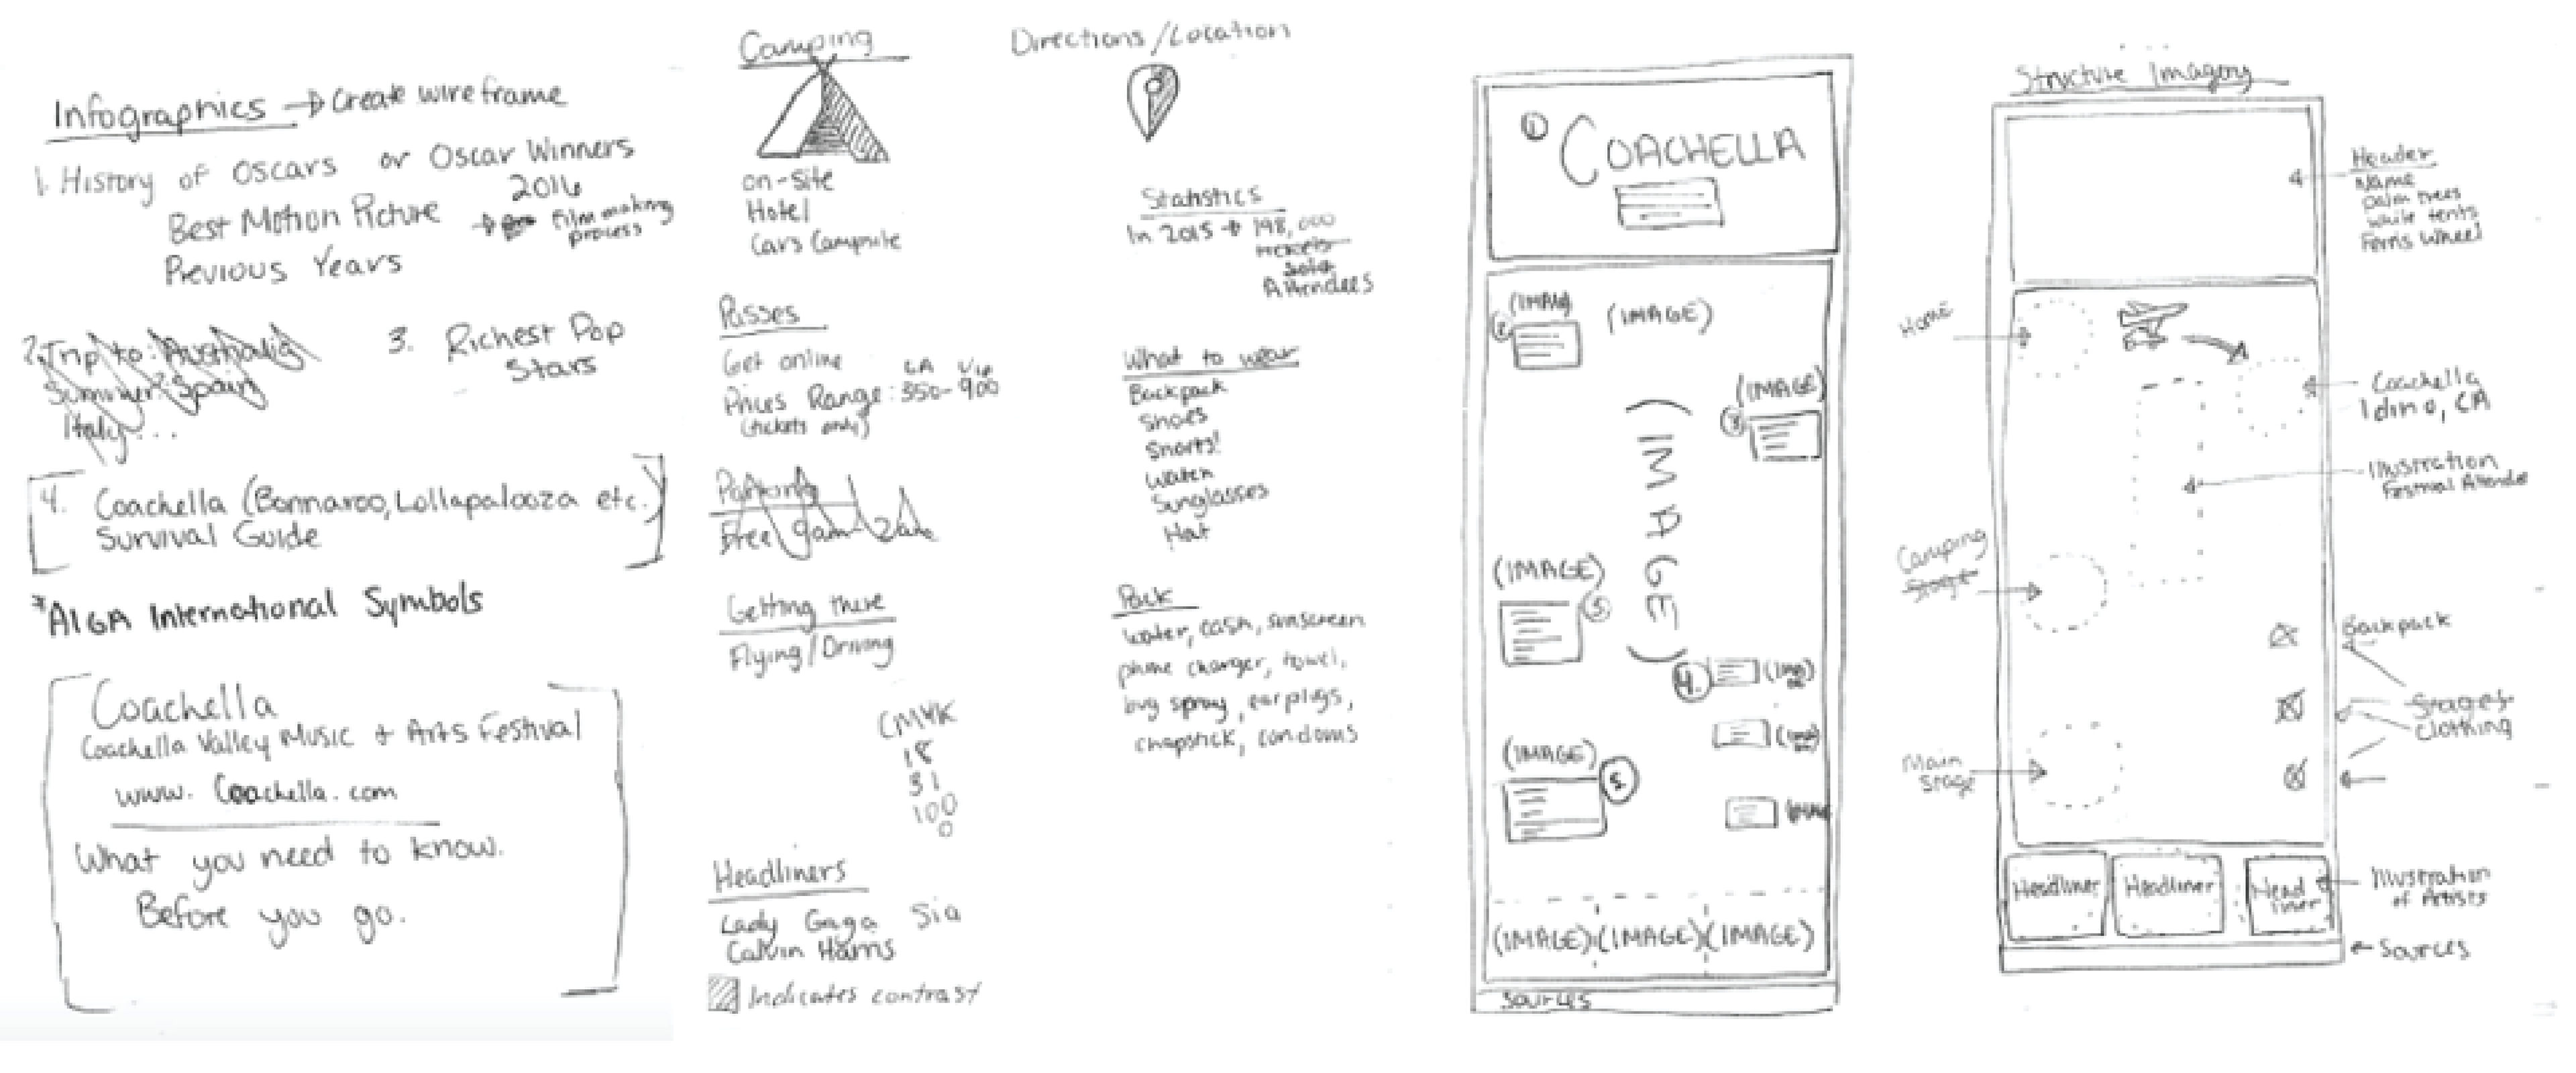 Infographics → Create wireframe
1. History of Oscars or Oscar Winners
2016
Best Motion Picture → Film making
process
Previous Years
2. Trip to: Australia
Summer: Spain
Italy...
3. Richest Pop
Stars
4. Coachella (Bonnaroo, Lollapalooza etc.)
Survival Guide
*AIGA International Symbols
Coachella
Coachella Valley Music + Arts Festival
www. Coachella. com
What you need to know.
Before you go.
Camping
on-site
Hotel
Cars Campsite
Passes
Get online
GA VIP
Prices Range: 350-900
(tickets only)
Parking
Free 9am 2am
Getting there
Flying/Driving
CMYK
18
31
100
0
Headliners
Lady Gaga Sia
Calvin Harris
Indicates contrast
Directions/Location
Statistics
In 2015 → 198,000
tickets
sold
Attendees
What to wear
Backpack
Shoes
Shorts!
Watch
Sunglasses
Hat
Pack
water, cash, sunscreen
phone charger, towel,
bug spray, earplugs,
chapstick, condoms
① COACHELLA
(IMAG
(IMAGE)
②
(IMAGE)
③
(IMAGE)
(IMAGE)
⑤
4.
(IMAGE)
5.
(IMAGE) (IMAGE) (IMAGE)
Sources
Structure Imagery
Header
Name
palm trees
white tents
Ferris Wheel
Home
Coachella
Idino, CA
Illustration
Festival Attende
Camping
Stage
Backpack
Stages
Clothing
Main
Stage
Headliner
Headliner
Head
liner
Illustration
of Artists
Sources